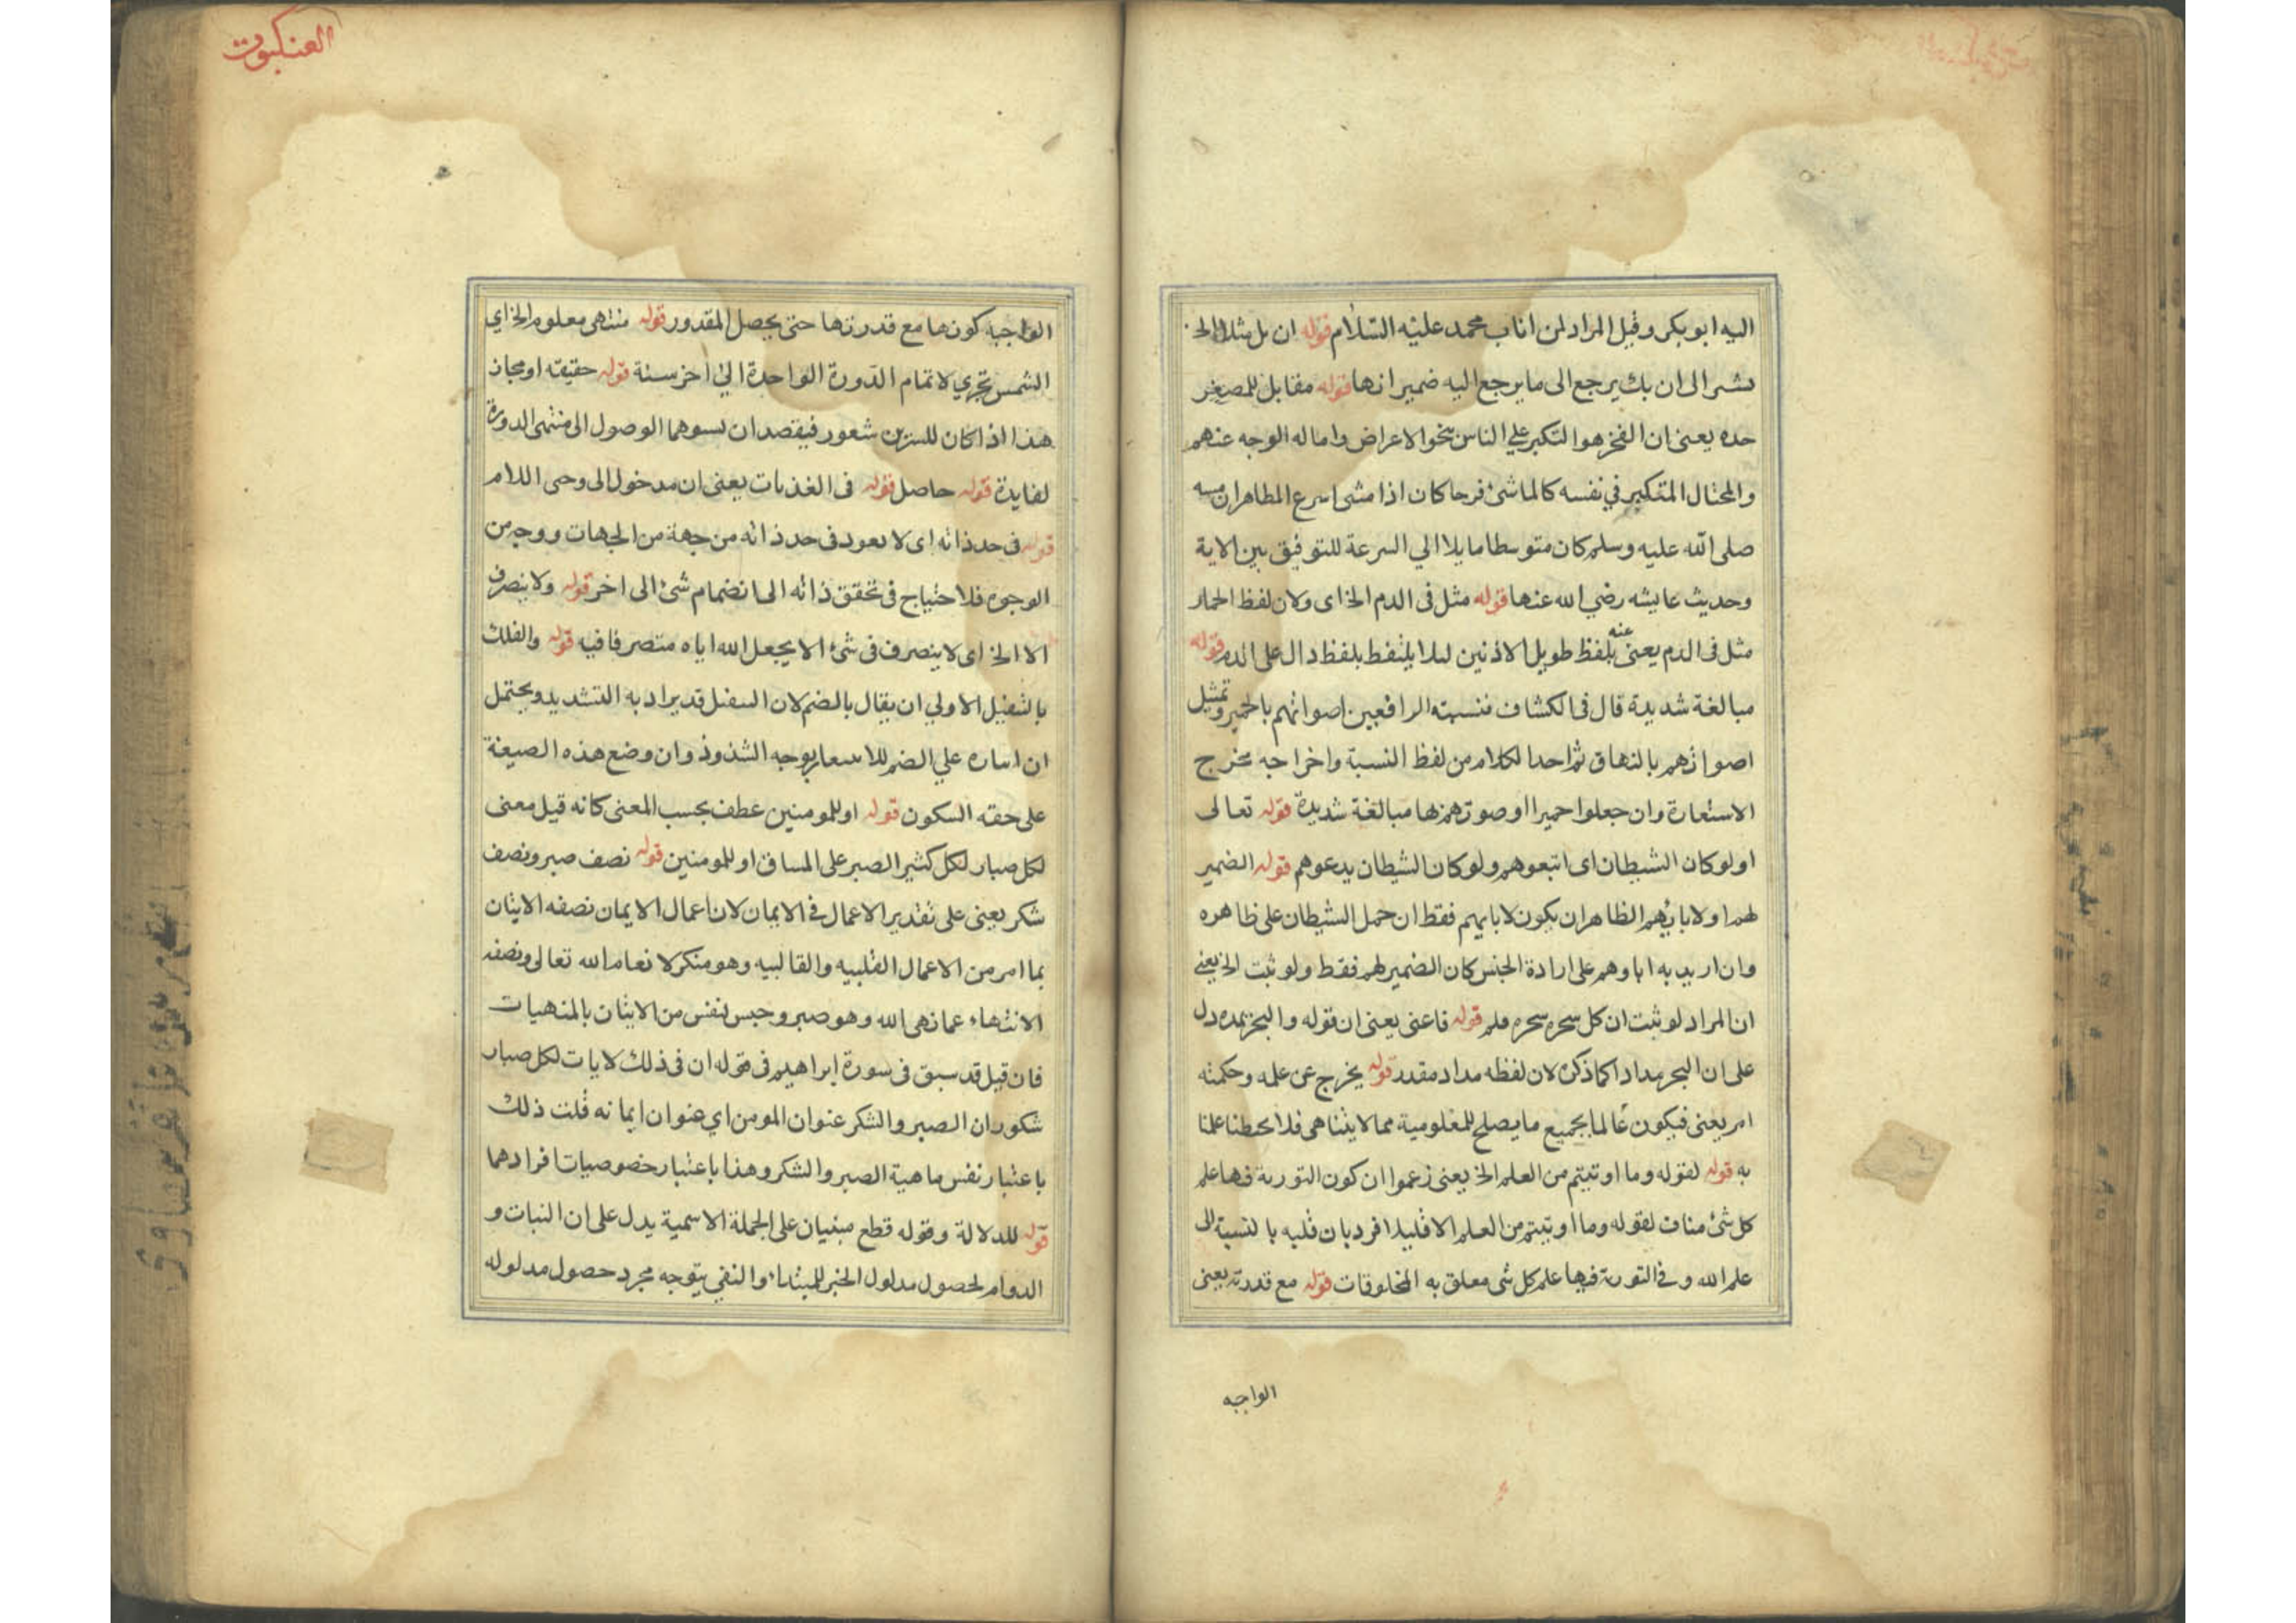 اليه ابو بكر وقيل المراد لمن اناب محمد عليه السلام قوله ان بل مثلا الخ
يشير الى ان يك يرجع الى ما يرجع اليه ضمير انها قوله مقابل للمصغر
حده يعنى ان الفخر هو التكبر على الناس بنحو الاعراض واماله الوجه عنهم
والمختال المتكبر في نفسه كالماشئ فرحا كان اذا مشى اسرع الظاهر ان مسه
صلى الله عليه وسلم كان متوسطا مايلا الي السرعة للتوفيق بين الاية
وحديث عايشه رضي الله عنها قوله مثل فى الدم الخ اى ولان لفظ الحمار
مثل فى الذم يعنى عنه بلفظ طويل الاذنين لىلا يلتفظ بلفظ دال على الذم قوله
مبالغة شديدة قال فى الكشاف فتشبيه الرافعين اصواتهم بالحمير وتمثيل
اصواتهم بالنهاق ثم اخدا لكلام من لفظ النسبة واخراجه مخرج
الاستعارة وان جعلوا حميرا وصوتهم نها مبالغة شديدة قوله تعالى
اولو كان الشيطان اى اتبعوهم ولو كان الشيطان يدعوهم قوله الضمير
لهم اولابايهم الظاهر ان يكون لابايهم فقط ان حمل الشيطان على ظاهره
وان اريد به اباوهم على ارادة الجنس كان الضمير لهم فقط ولو ثبت الخ يعنى
ان المراد لو ثبت ان كل سحره سحره قلم قوله فاغنى يعنى ان قوله والبحر يمده دل
على ان البحر مداد اكما ذكره لان لفظه مداد مقدر قوله يخرج عن علمه وحكمته
امر يعنى فيكون عالما بجميع ما يصلح للمعلومية مما لا يتناهى فلا يحطنا علمنا
به قوله لقوله وما اوتيتم من العلم الخ يعنى زعموا ان كون التورية فيها علم
كل شئ مناف لقوله وما اوتيتم من العلم الا قليلا فرد بان قليه بالنسبة الى
علم الله وفى التورية فيها علم كل شى معلق به المخلوقات قوله مع قدرته يعنى
الواجبه
العنكبوت
الواجبه كونها مع قدرتها حتى يحصل المقدور قوله منتهى معلوم الخ اي
الشمس تجري لاتمام الدورة الواحدة الي اخر سنة قوله حقيقه او مجاز
هذا اذا كان للنيرين شعور فيقصدان لسوهما الوصول الى منتهى الدورة
لفايدة قوله حاصل قوله فى الغذبات يعنى ان مدخول الى وحى اللام
قوله فى حد ذاته اى لا يعود فى حد ذاته من جهة من الجهات ووجه من
الوجوه فلا احتياج فى تحقق ذاته الى انضمام شئ الى اخر قوله ولا يتصرف
الا الخ اى لا يتصرف فى شئ الا يجعل الله اياه متصرفا فيه قوله والفلك
بالتثقيل الاولي ان يقال بالضم لان التثقيل قد يراد به التشديد ويحتمل
ان اساره علي الضم للاسعار بوجه الشذوذ وان وضع هذه الصيغة
على حقه السكون قوله اوللمومنين عطف بحسب المعنى كانه قيل معنى
لكل صبار لكل كثير الصبر على المساق اوللمومنين قوله نصف صبر ونصف
شكر يعنى على تقدير الاعمال فى الايمان لان اعمال الايمان نصفه الاتيان
بما امر من الاعمال القلبيه والقالبيه وهو منكر لا نعام الله تعالى ونصفه
الانتهاء عما نهى الله وهو صبر وحبس لنفس من الاتيان بالمنهيات
فان قيل قد سبق فى سورة ابراهيم فى قوله ان فى ذلك لايات لكل صبار
شكور ان الصبر والشكر عنوان المومن اي عنوان ايمانه قلت ذلك
باعتبار نفس ماهية الصبر والشكر وهذا باعتبار خصوصيات افرادهما
قوله للدلالة وقوله قطع مبنيان على الجملة الاسمية يدل على ان الثبات و
الدوام لحصول مدلول الخبر للمبتداء والنفى يتوجه مجرد حصول مدلوله